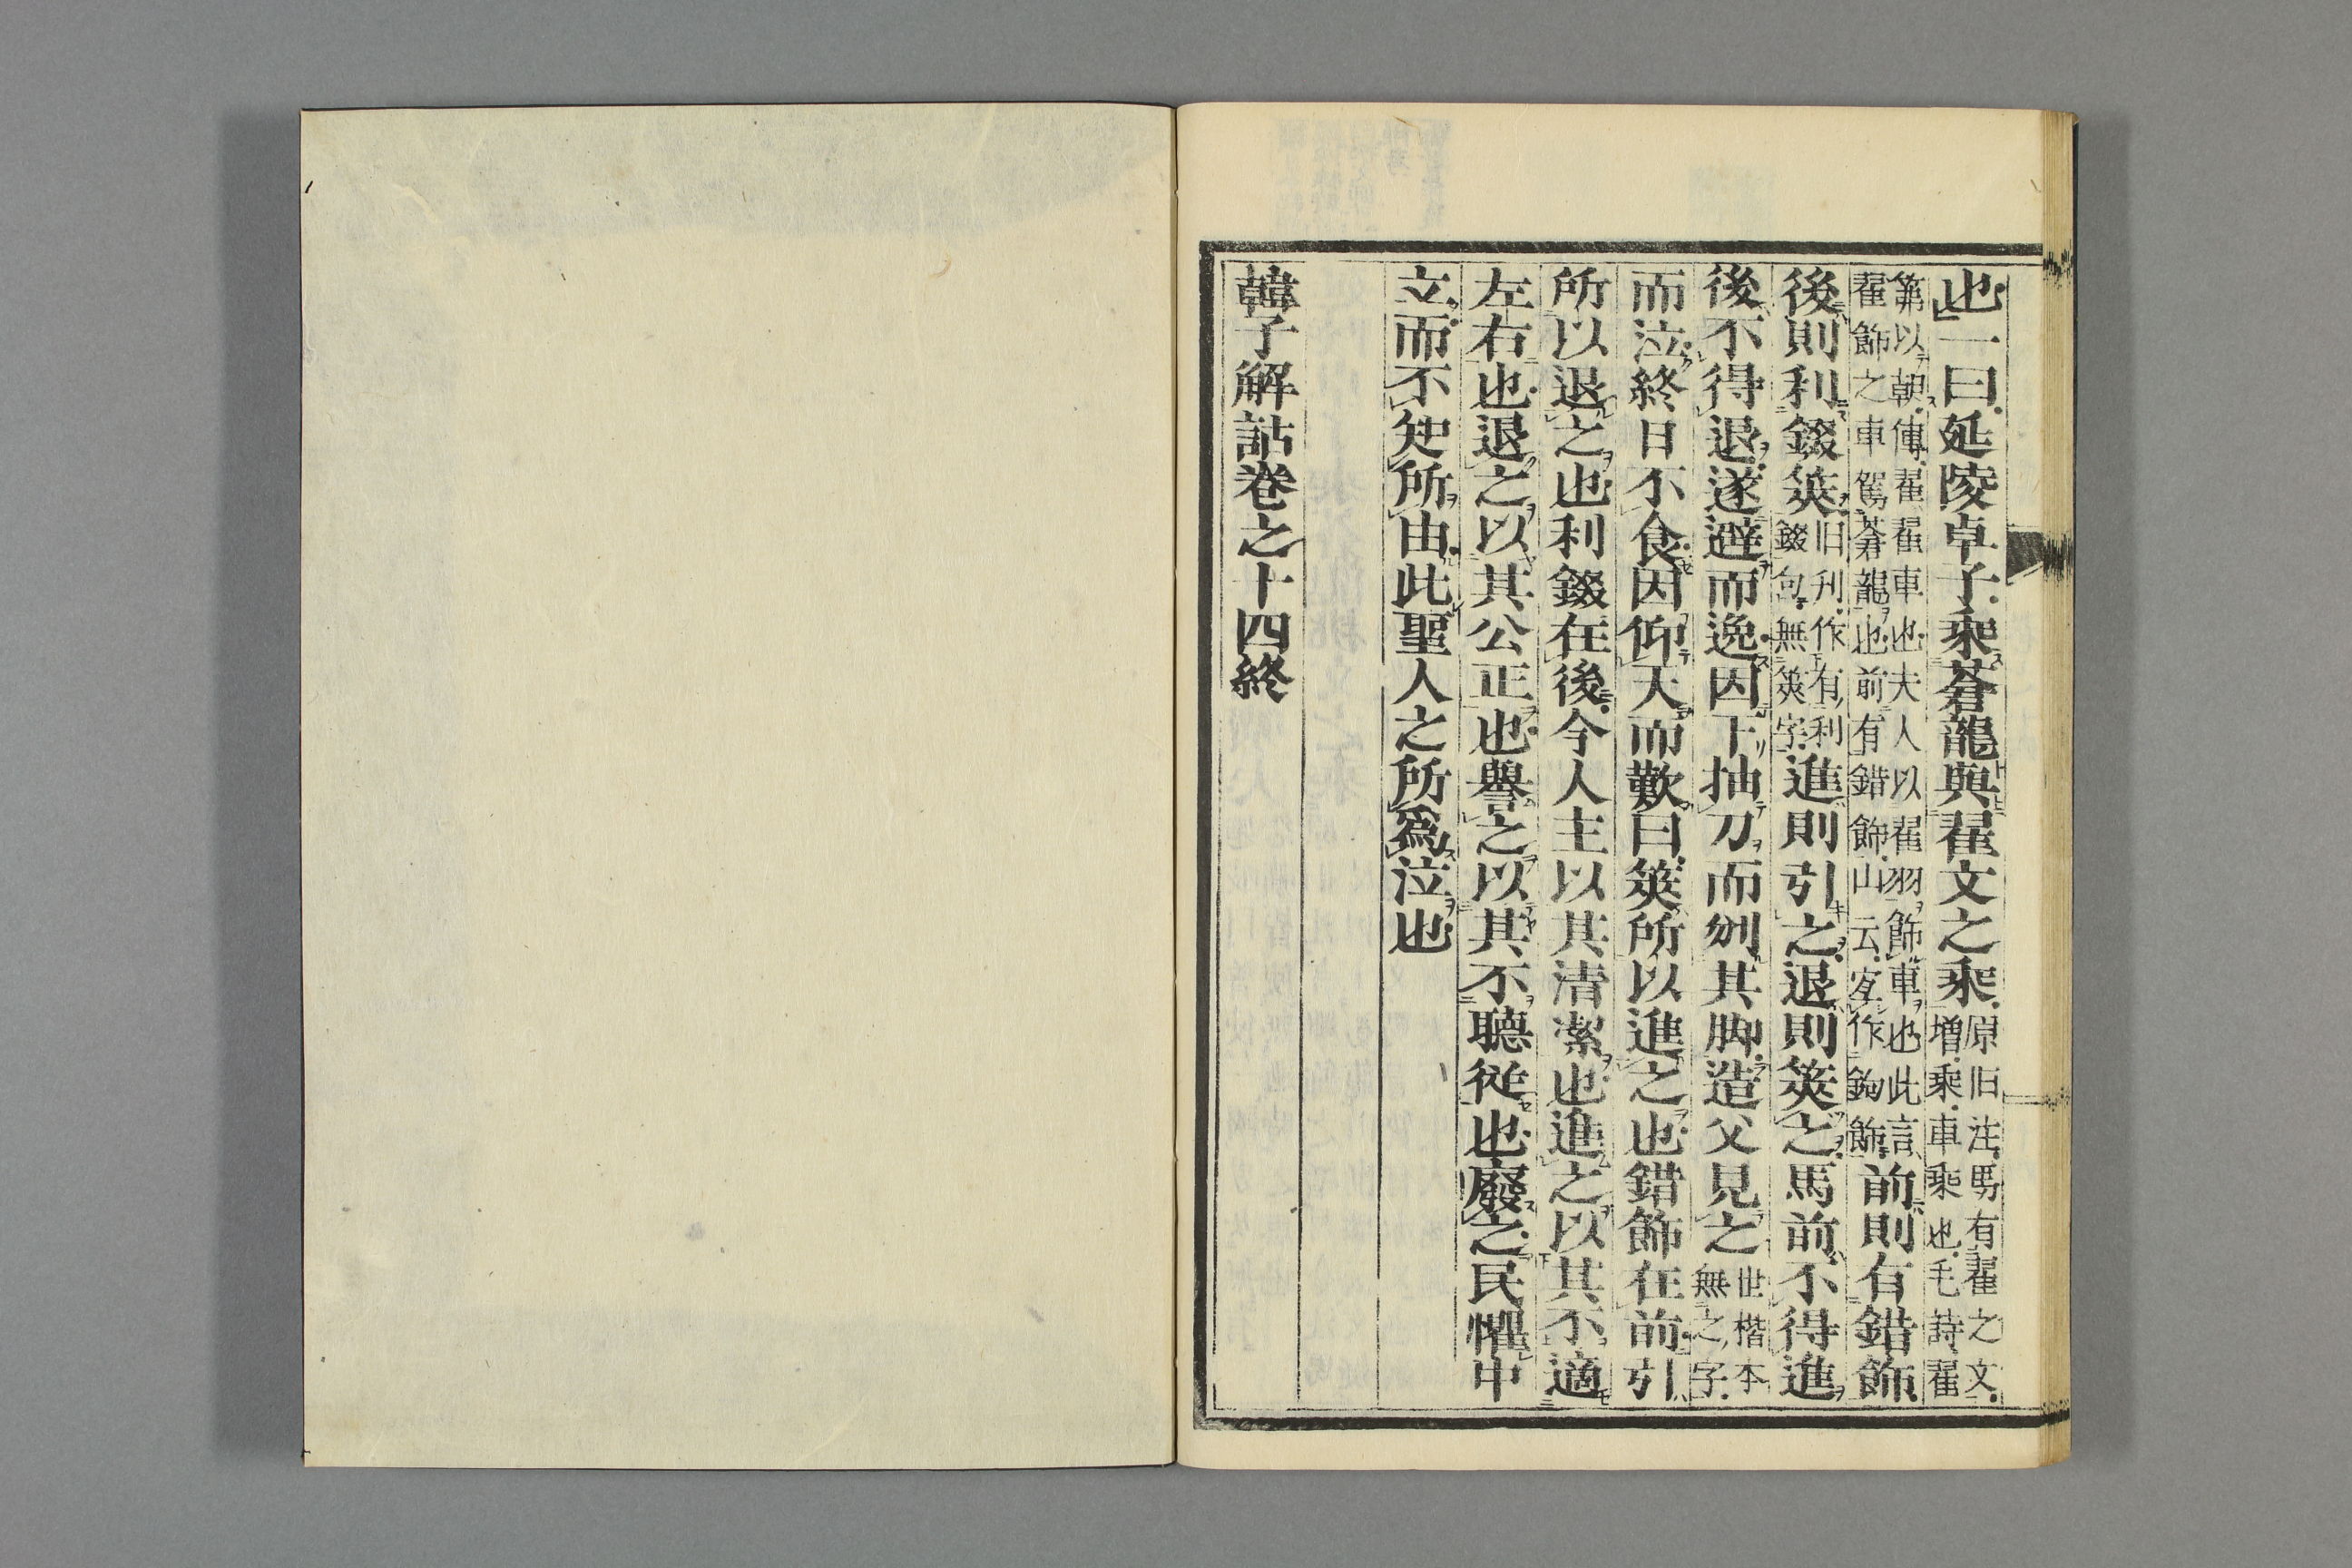 也一曰延陵卓子乘蒼龍與翟文之乘原旧注馬有翟之文増乘車乘也毛詩翟
茀以朝傳翟翟車也夫人以翟羽飾車也此言翟飾之車駕蒼龍也前有錯飾山云㝎作鉤飾前則有錯飾
後則利錣筴旧刊作有利錣句無筴字進則引之退則筴之馬前不得進
後不得退遂避而逸因下抽刀而刎其脚造父見之世楷本無之字
而泣終日不食因仰天而歎曰筴所以進之也錯飾在前引
所以退之也利錣在後今人主以其清潔也進之以其不適
左右也退之以其公正也譽之以其不聽從也廢之民懼中
立而不知所由此聖人之所爲泣也
韓子解詁卷之十四終